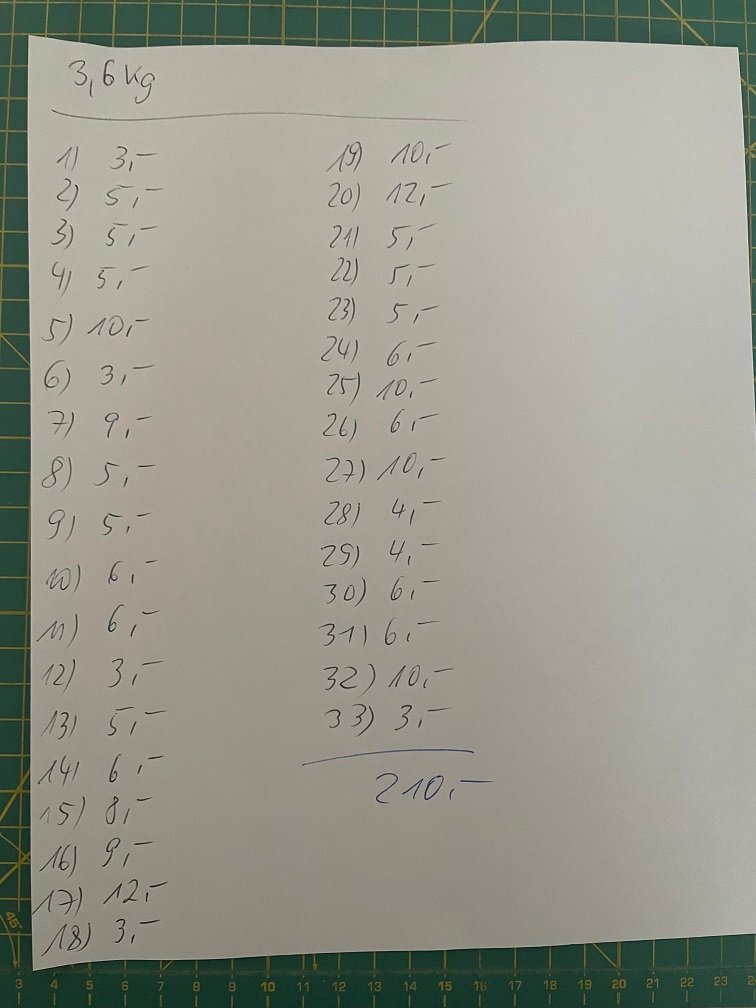 3,6 kg
1) 3,-
2) 5,-
3) 5,-
4) 5,-
5) 10,-
6) 3,-
7) 9,-
8) 5,-
9) 5,-
10) 6,-
11) 6,-
12) 3,-
13) 5,-
14) 6,-
15) 8,-
16) 9,-
17) 12,-
18) 3,-
19) 10,-
20) 12,-
21) 5,-
22) 5,-
23) 5,-
24) 6,-
25) 10,-
26) 6,-
27) 10,-
28) 4,-
29) 4,-
30) 6,-
31) 6,-
32) 10,-
33) 3,-
210,-
45°
3 4 5 6 7 8 9 10 11 12 13 14 15 16 17 18 19 20 21 22 23